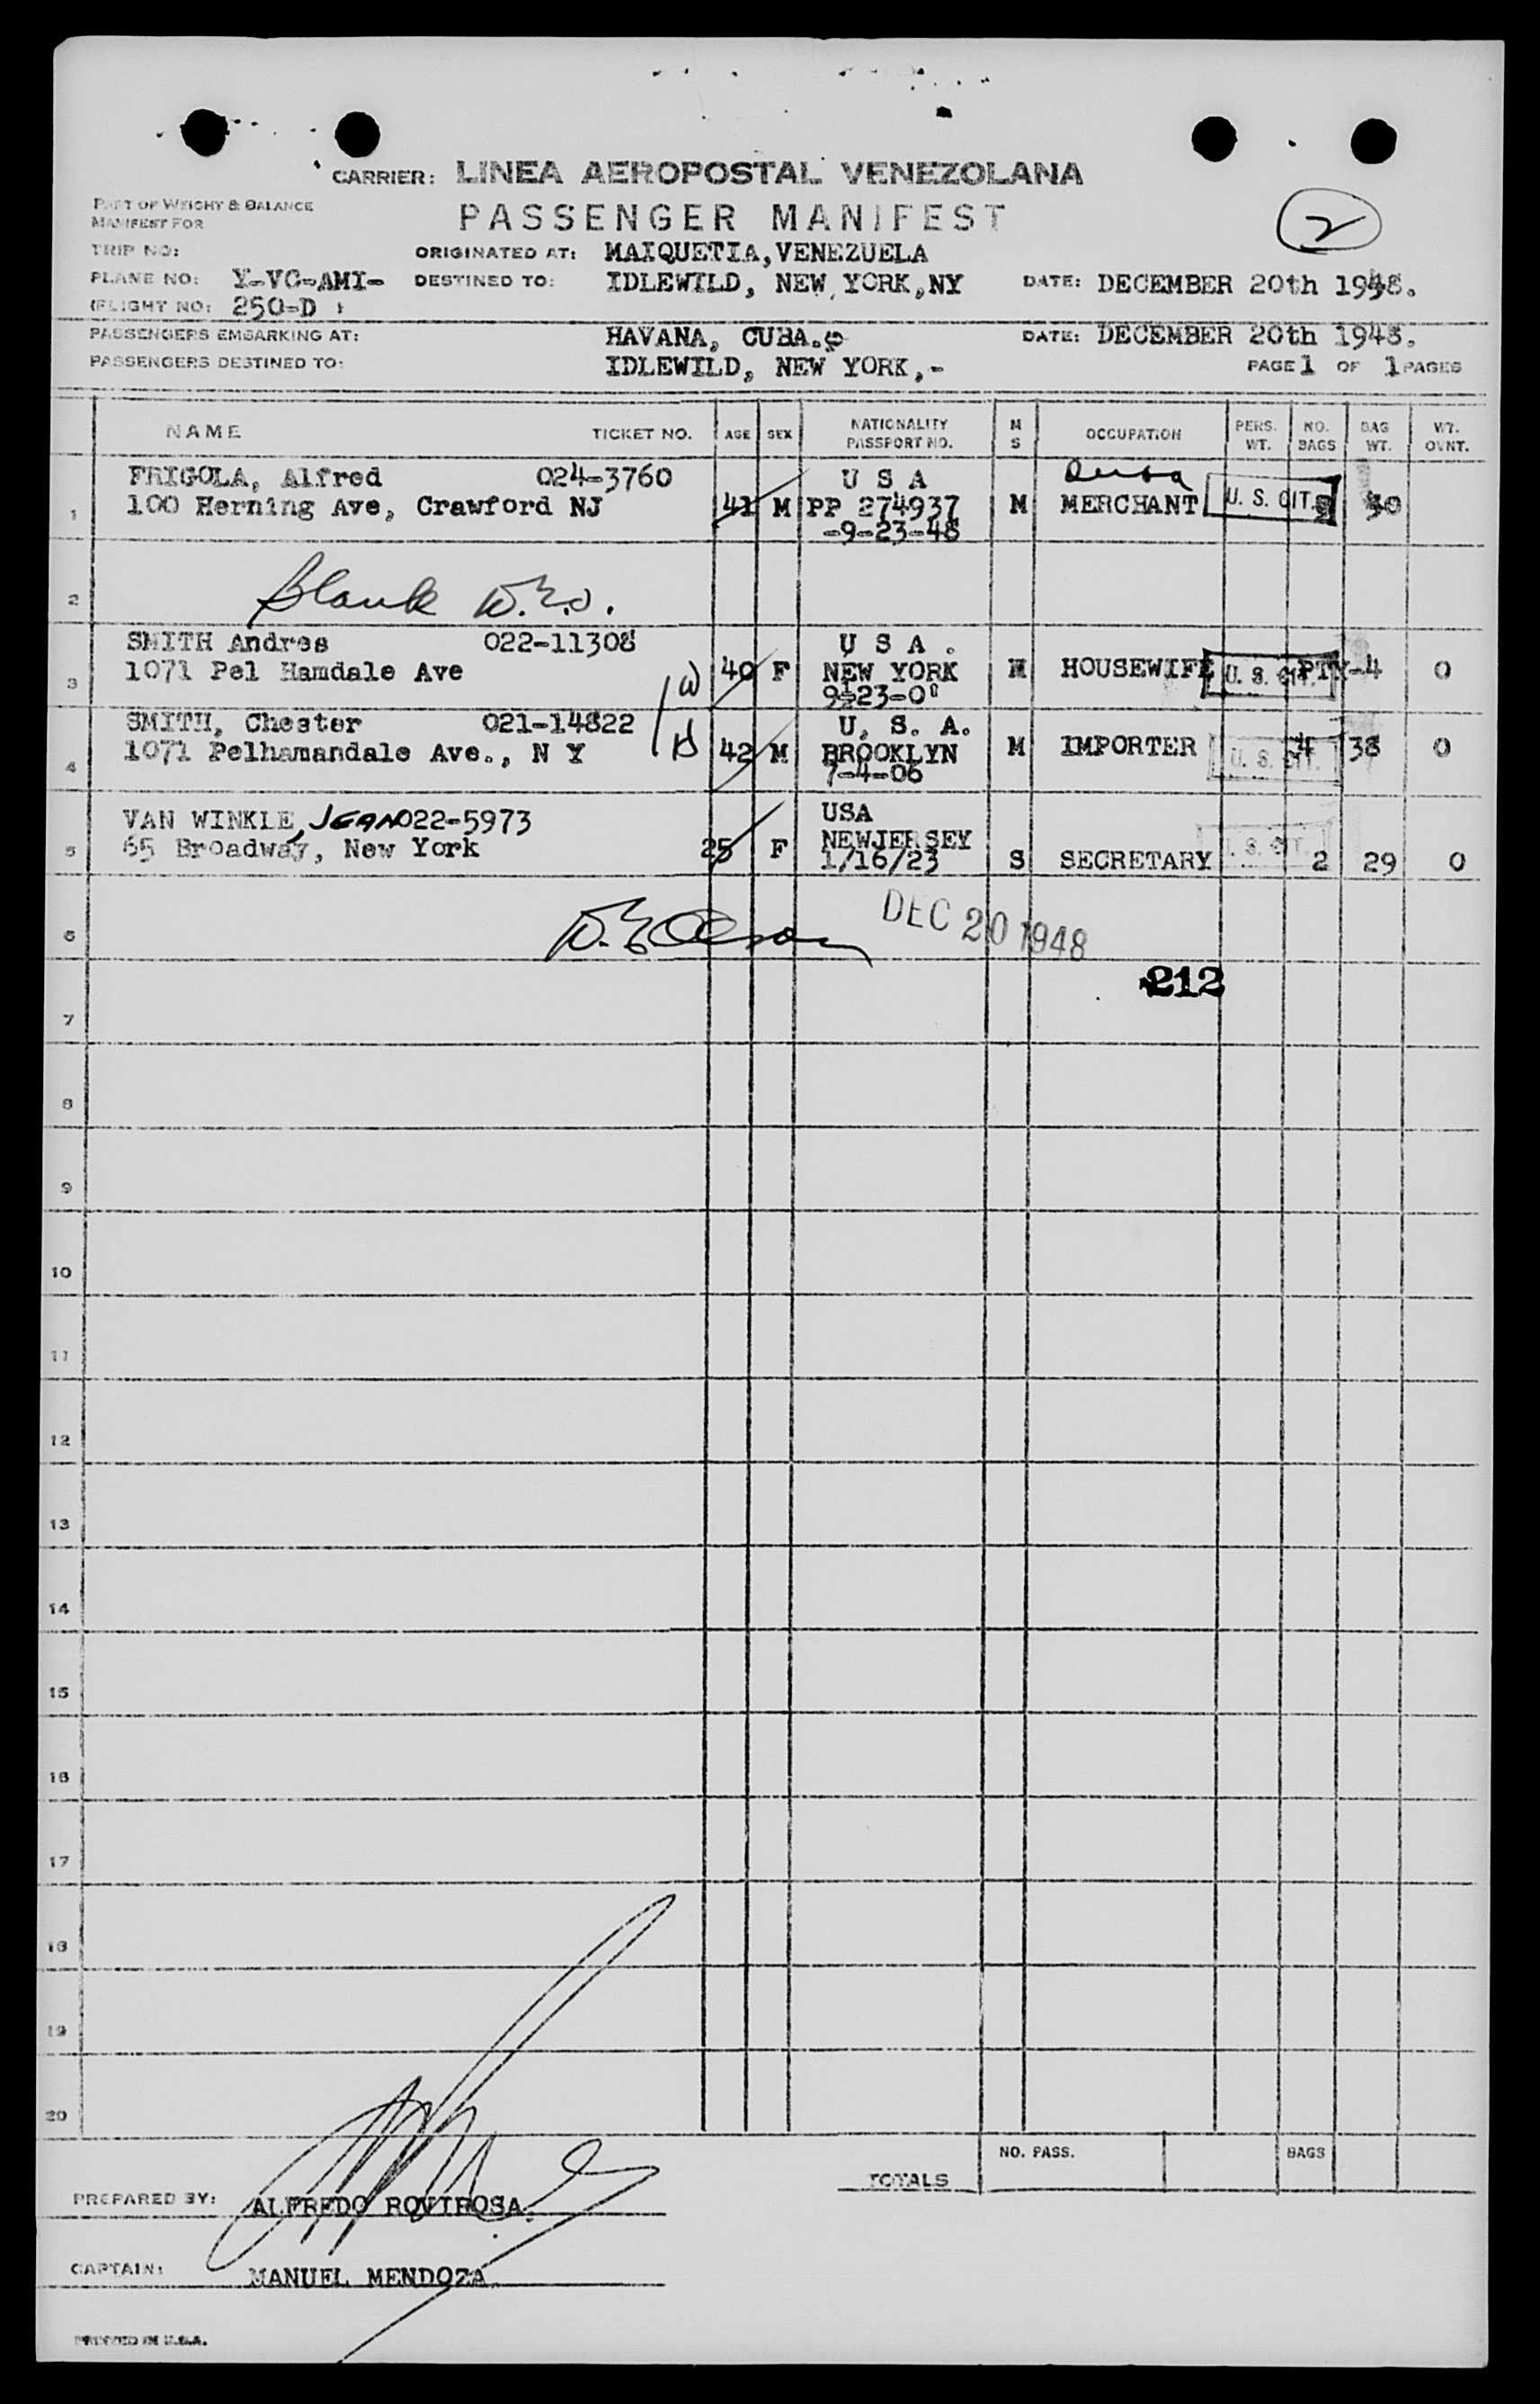 CARRIER: LINEA AEROPOSTAL VENEZOLANA
PART OF WEIGHT & BALANCE
MANIFEST FOR
PASSENGER MANIFEST
2
TRIP NO:
ORIGINATED AT: MAIQUETIA, VENEZUELA
PLANE NO: Y-VC-AMI-
DESTINED TO: IDLEWILD, NEW YORK, NY
DATE: DECEMBER 20th 1948.
FLIGHT NO: 250-D
PASSENGERS EMBARKING AT: HAVANA, CUBA.
DATE: DECEMBER 20th 1948.
PASSENGERS DESTINED TO: IDLEWILD, NEW YORK,-
PAGE 1 OF 1 PAGES
NAME TICKET NO. AGE SEX NATIONALITY PASSPORT NO. M S OCCUPATION PERS. WT. NO. BAGS BAG WT. WT. OVNT.
FRIGOLA, Alfred 024-3760 U S A
1 100 Herning Ave, Crawford NJ 41 M PP 274937 M MERCHANT U. S. CIT. 30
-9-23-48
2 Blank
SMITH Andres 022-11308 U S A .
3 1071 Pel Hamdale Ave W 40 F NEW YORK M HOUSEWIFE U. S. CIT. PTY-4 0
9-23-08
SMITH, Chester 021-14822 U. S. A.
4 1071 Pelhamandale Ave., N Y H 42 M BROOKLYN M IMPORTER U. S. CIT. 4 38 0
7-4-06
VAN WINKLE, JEAN 022-5973 USA
5 65 Broadway, New York 25 F NEWJERSEY S SECRETARY U. S. CIT. 2 29 0
1/16/23
6 DEC 20 1948
212
7
8
9
10
11
12
13
14
15
16
17
18
19
20
TOTALS NO. PASS. BAGS
PREPARED BY: ALFREDO ROVIROSA.
CAPTAIN: MANUEL MENDOZA
PRINTED IN U.S.A.